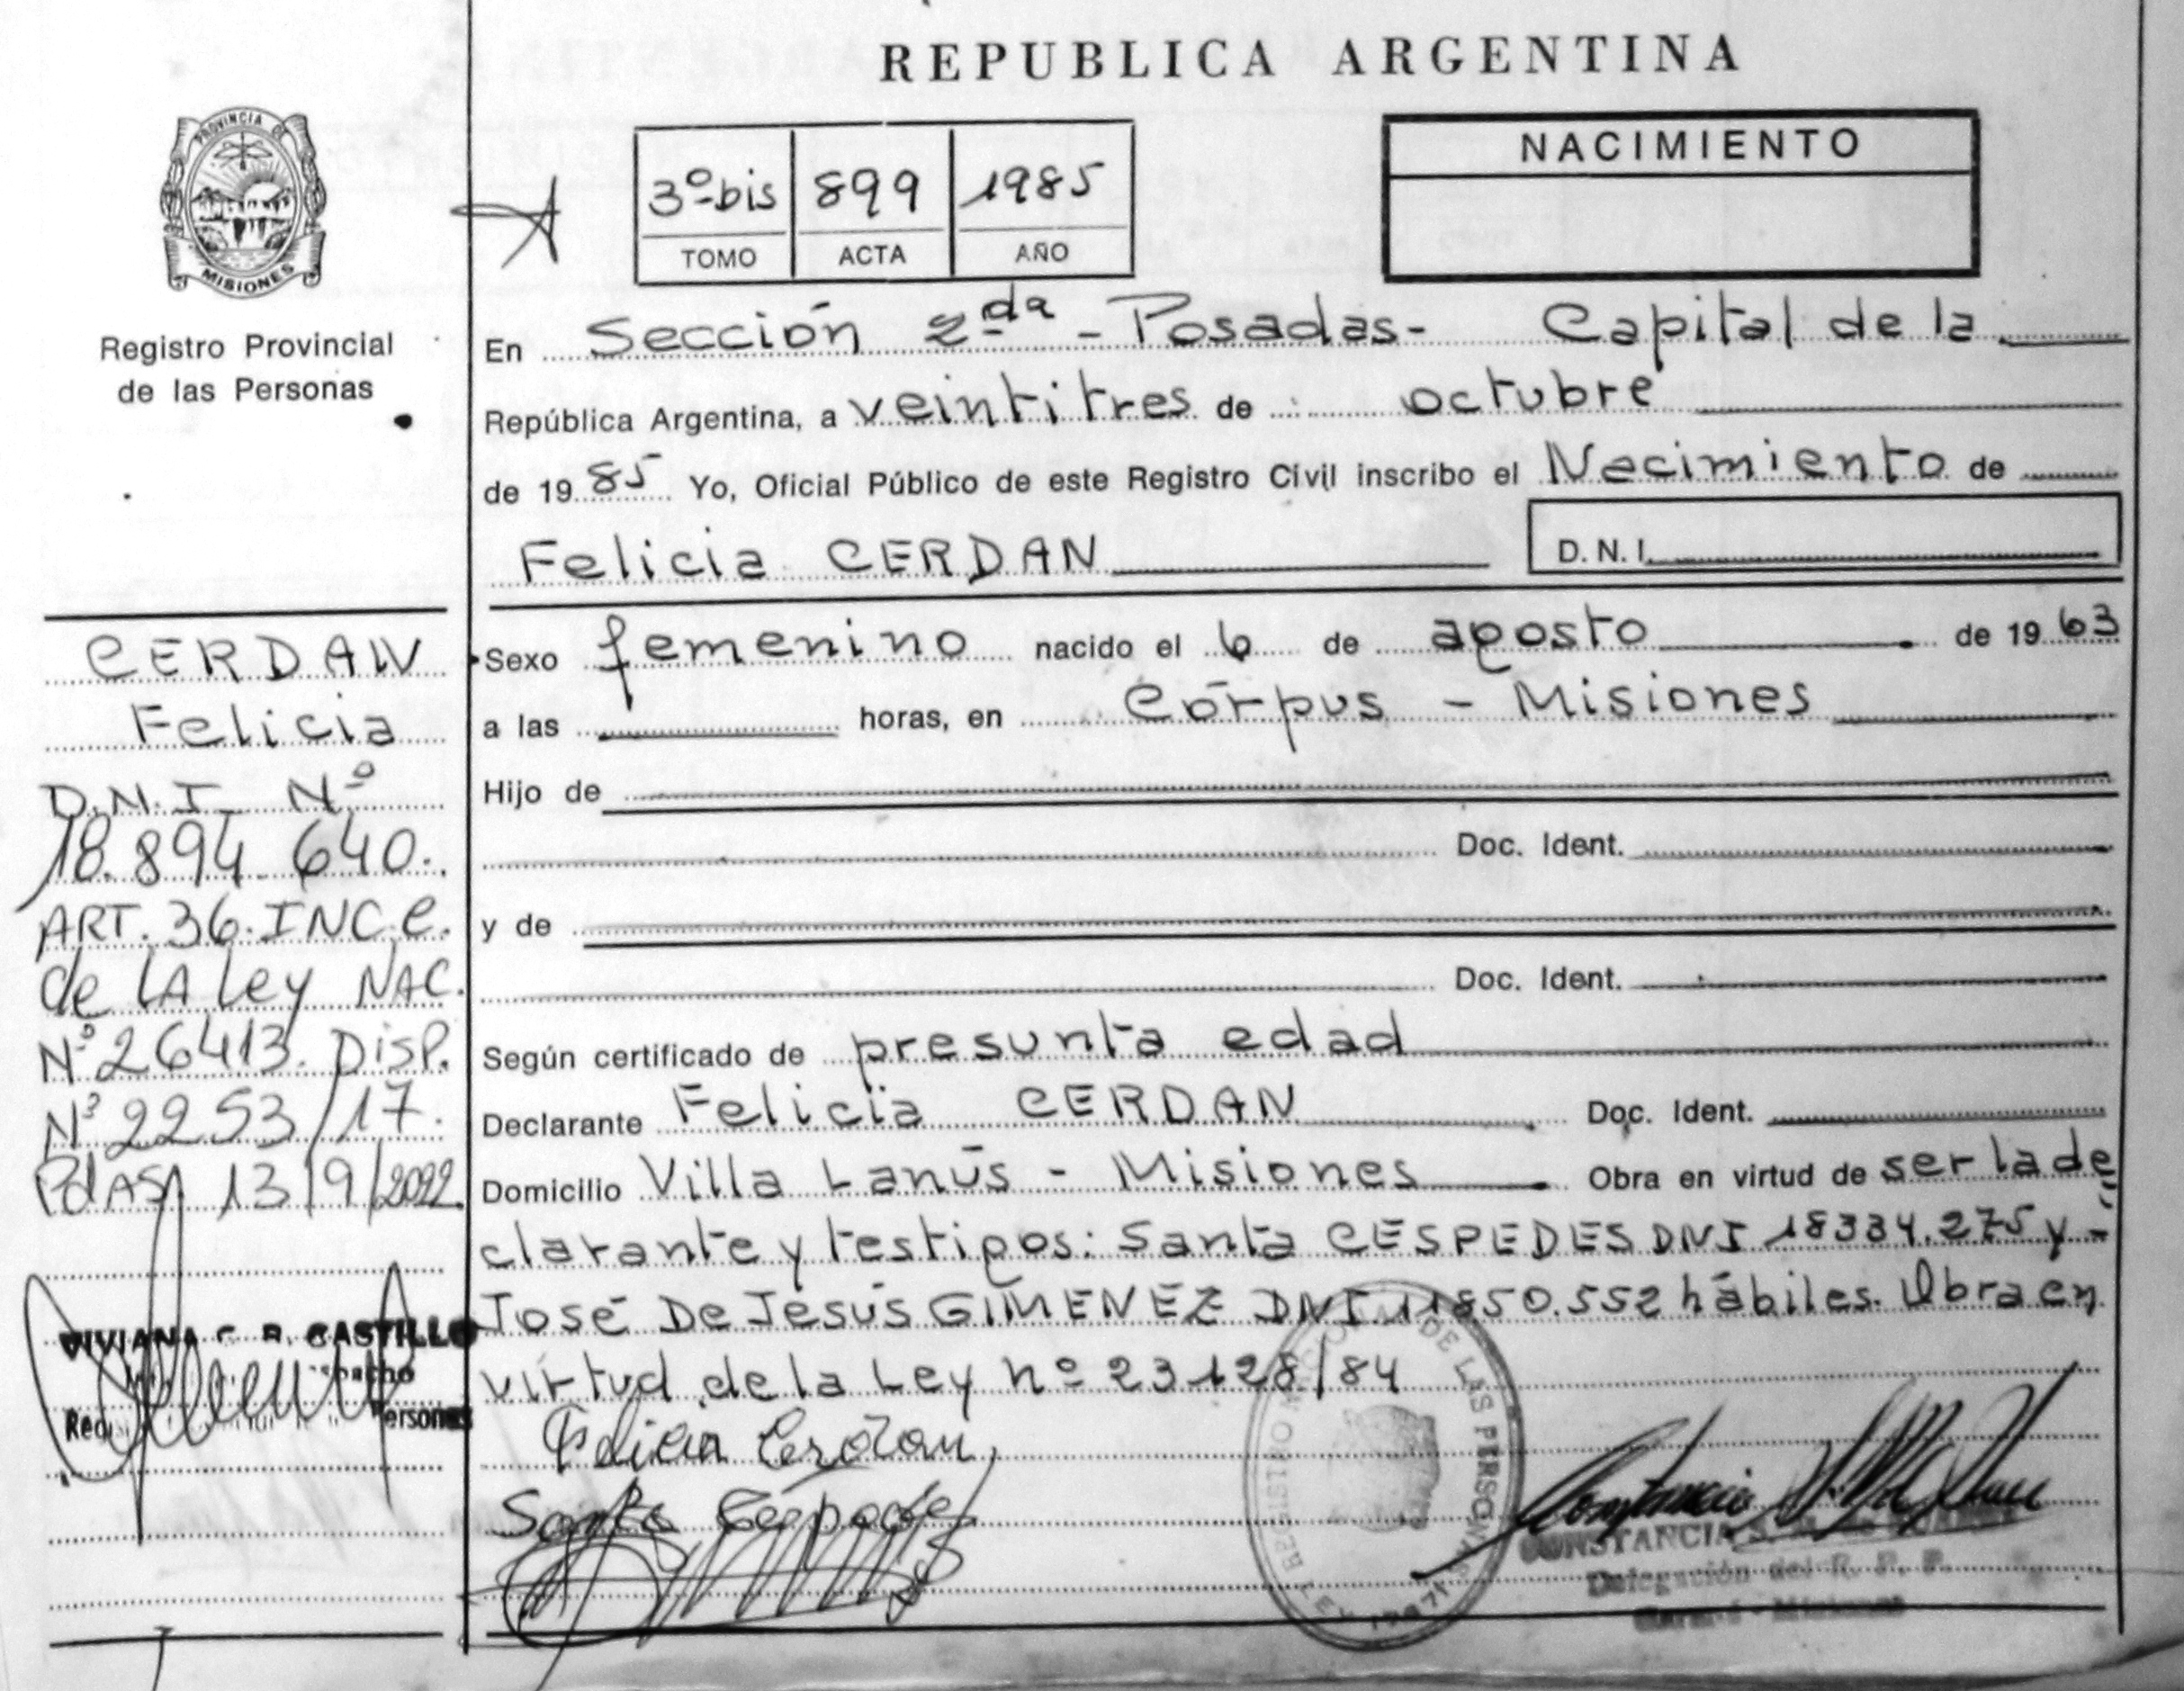 REPUBLICA ARGENTINA
PROVINCIA DE
MISIONES
Registro Provincial
de las Personas
3º bis 899 1985
TOMO ACTA AÑO
NACIMIENTO
En Sección 2da - Posadas - Capital de la
República Argentina, a veintitres de octubre
de 1985 Yo, Oficial Público de este Registro Civil inscribo el Nacimiento de
Felicia CERDAN D.N.I.
Sexo femenino nacido el 6 de agosto de 1963
a las horas, en Córpus - Misiones
Hijo de
Doc. Ident.
y de
Doc. Ident.
Según certificado de presunta edad
Declarante Felicia CERDAN Doc. Ident.
Domicilio Villa Lanús - Misiones Obra en virtud de ser la de
clarante y testigos: Santa CESPEDES DNI 18334.275 y -
José De Jesús GIMENEZ DNI 11850.552 hábiles. Obra en
virtud de la Ley nº 23128/84
CERDAN
Felicia
D.N.I. Nº
18.894 640.
ART. 36. INC. C.
de LA Ley NAC.
Nº 26413. DISP.
Nº 2253/17.
PdAS, 13/9/2022
VIVIANA CASTILLO
Personas
Cerdan
Santa Céspedes
REGISTRO DE LAS PERSONAS
LEY
CONSTANCIA
Delegación del R. P. P.
Misiones